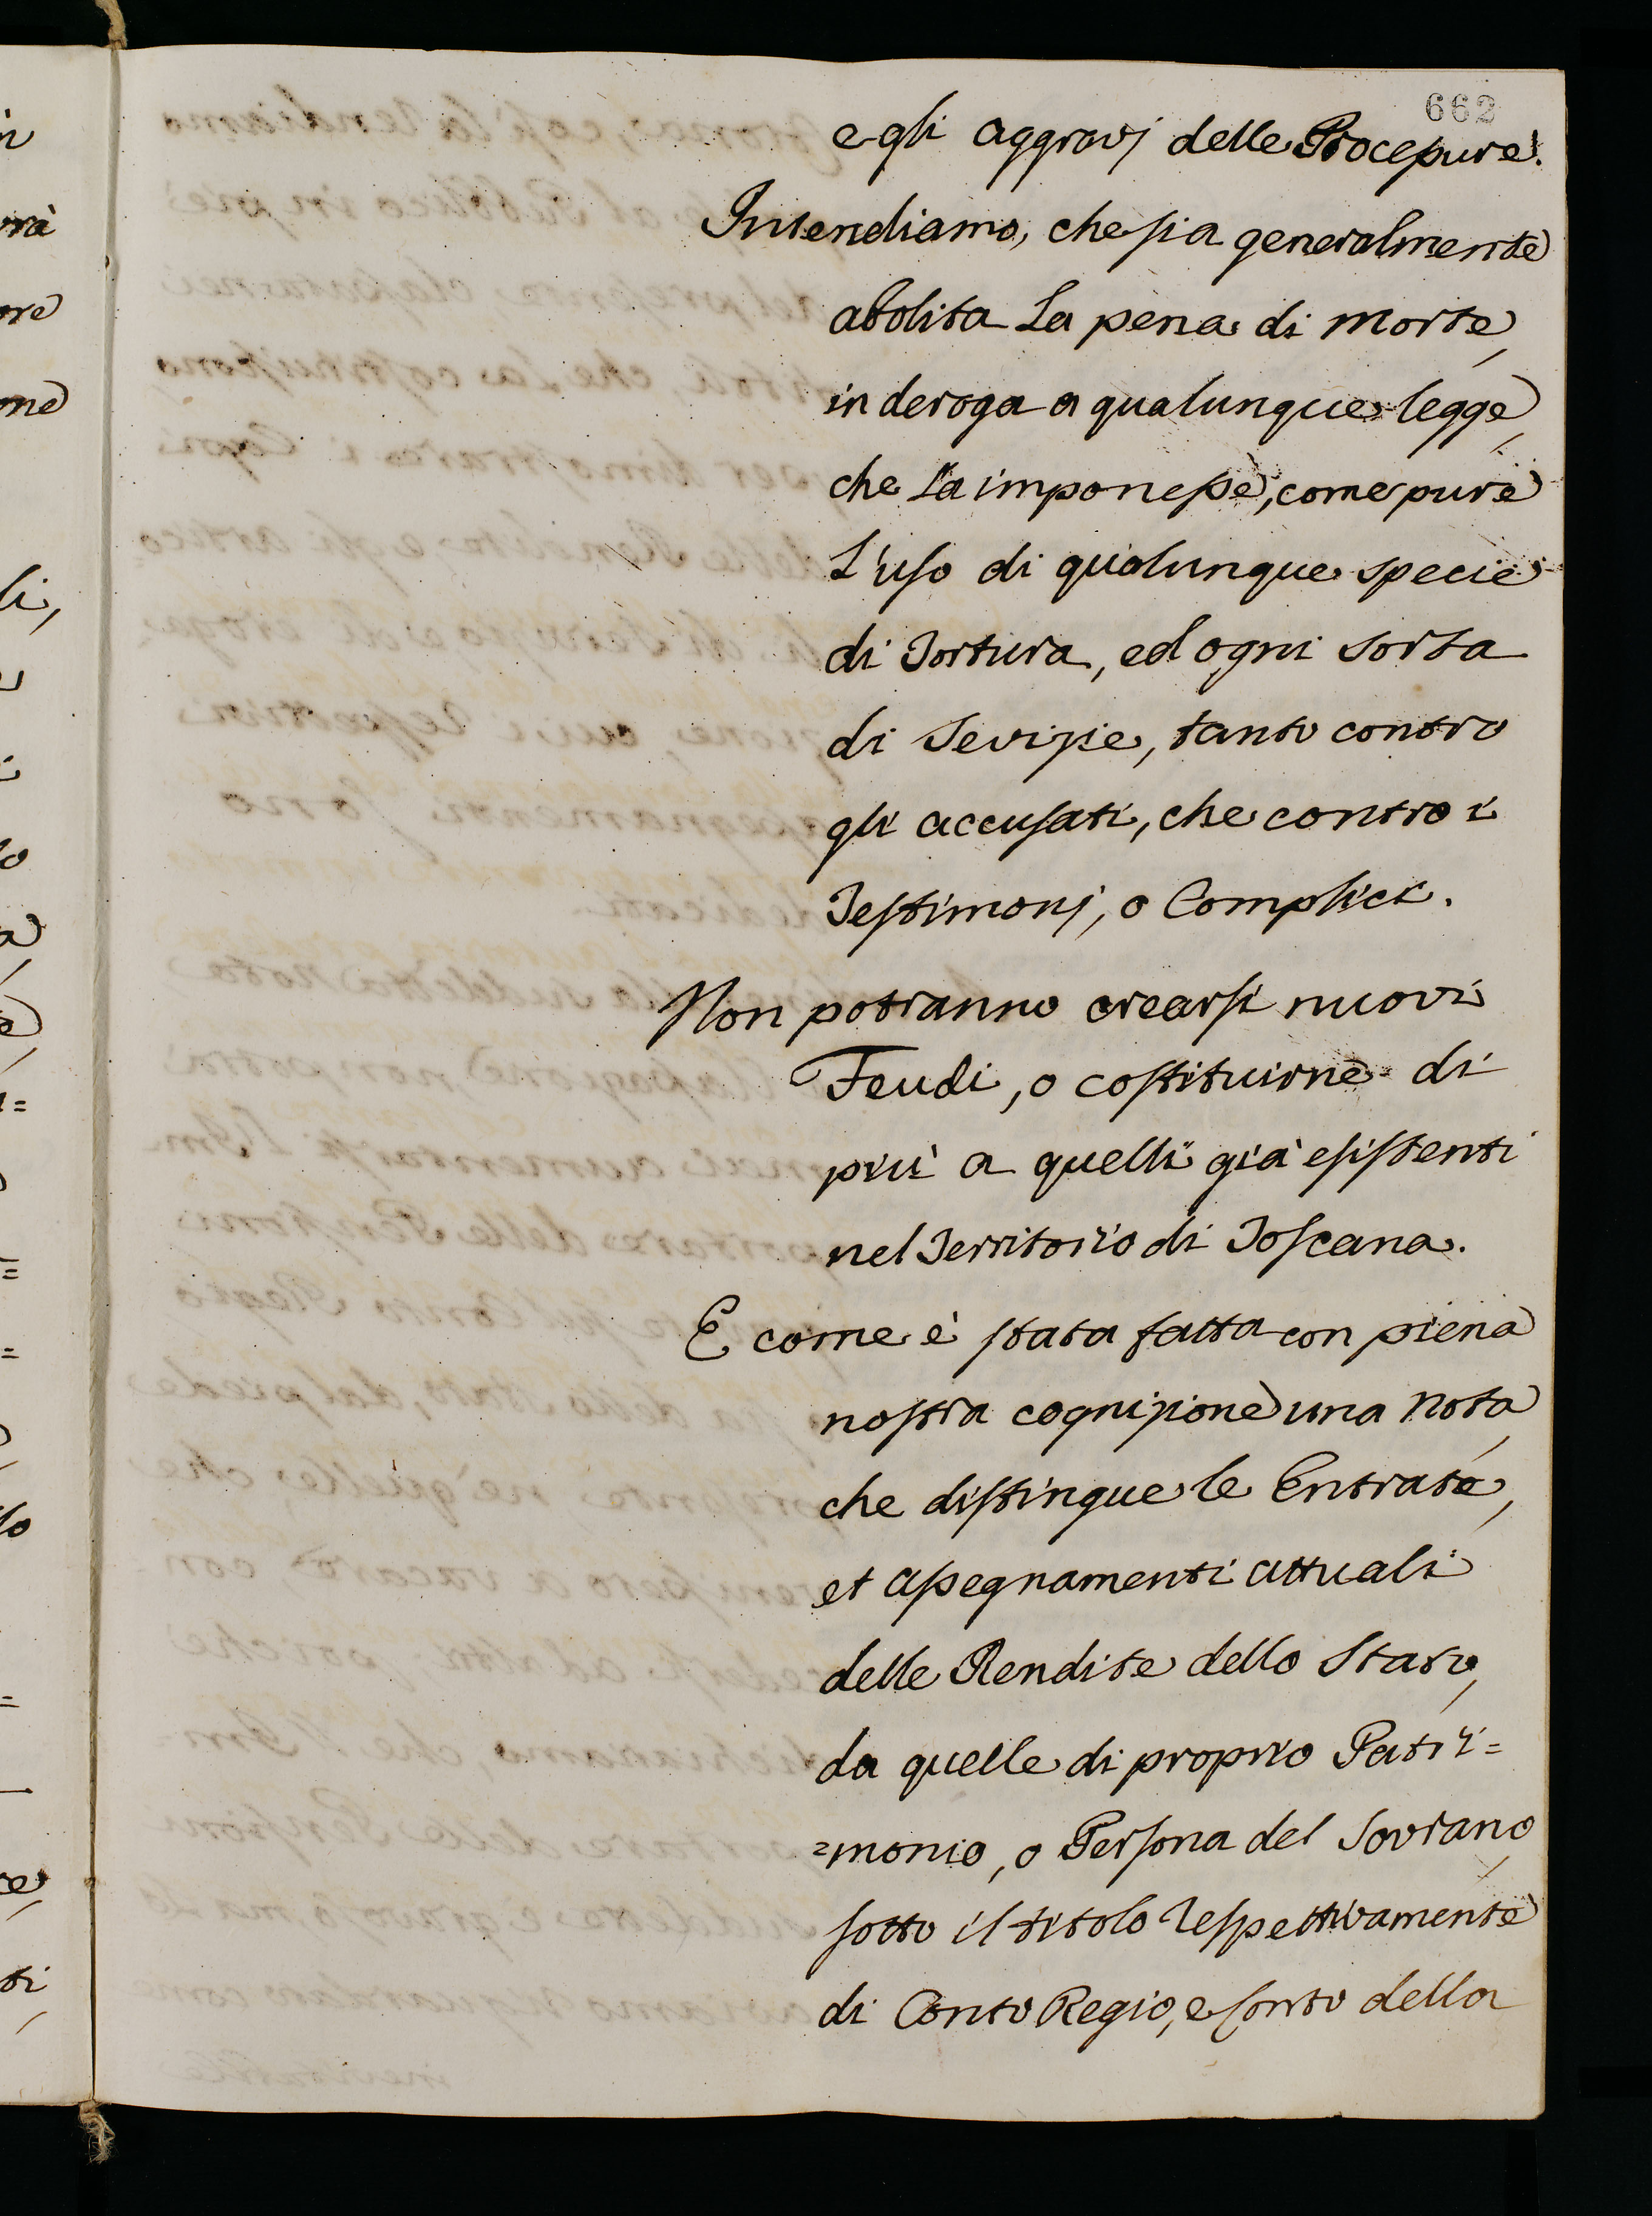 662
e gli aggravj delle Processure.
Intendiamo, che sia generalmente
abolita La pena di Morte,
in deroga a qualunque legge,
che La imponesse, come pure
L'uso di qualunque specie
di Tortura, ed ogni sorta
di Sevizie, tanto contro
gli accusati, che contro i
Testimonj, o Complici.
Non potranno crearsi nuovi
Feudi, o costituirne di
più a quelli già esistenti
nel Territorio di Toscana.
E come è stata fatta con piena
nostra cognizione una Nota,
che distingue le Entrate,
et assegnamenti attuali
delle Rendite dello Stato,
da quelle di proprio Patri=
=monio, o Persona del Sovrano,
sotto il titolo respettivamente
di Conto Regio, e Conto della